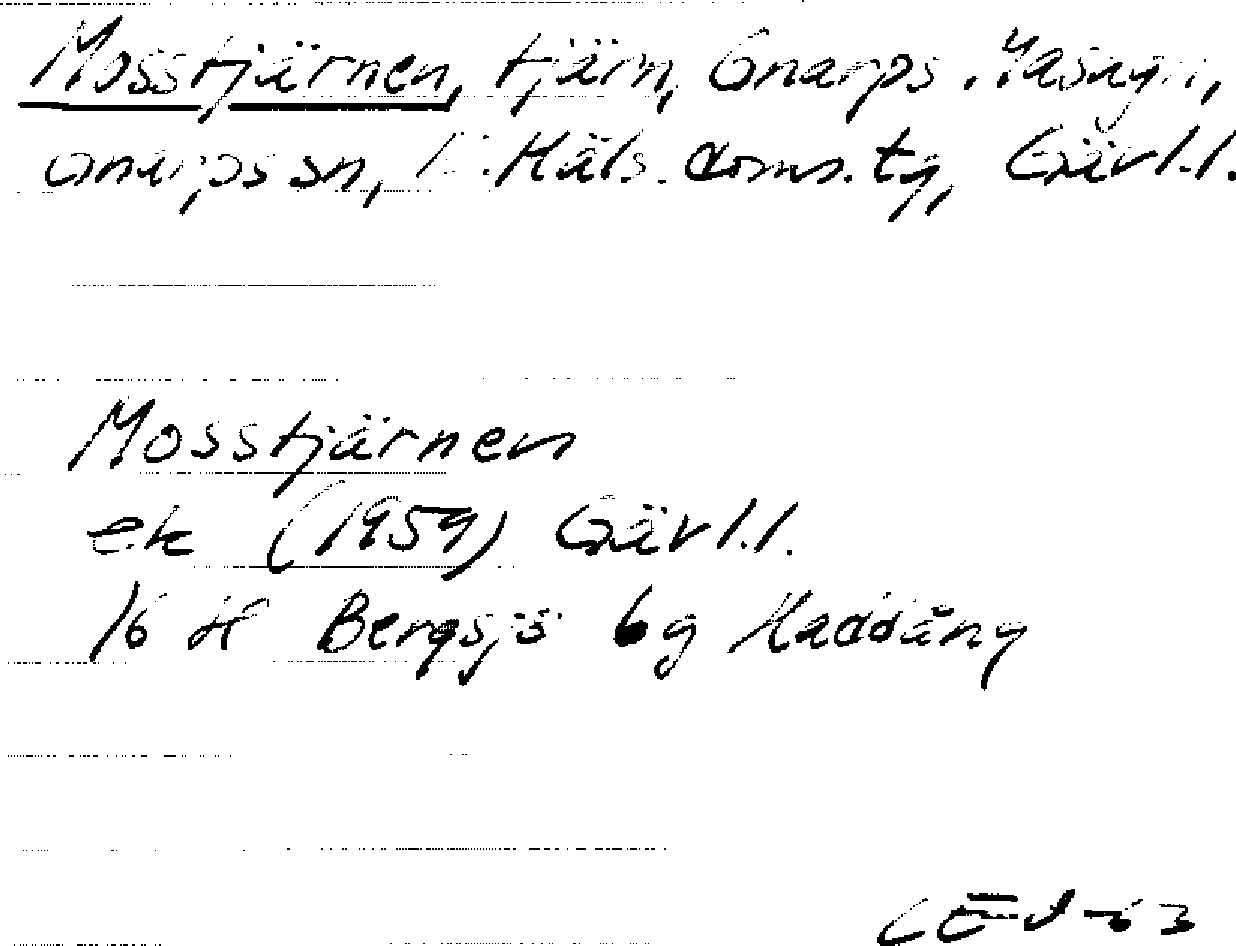 Mosstjärnen, tjärn, Gnarps
Gnarps sn, Häls. doms. tg, Gävl.l.
Mosstjärnen
ek (1959) Gävl.l.
16 H Bergsjö 6g Haddäng